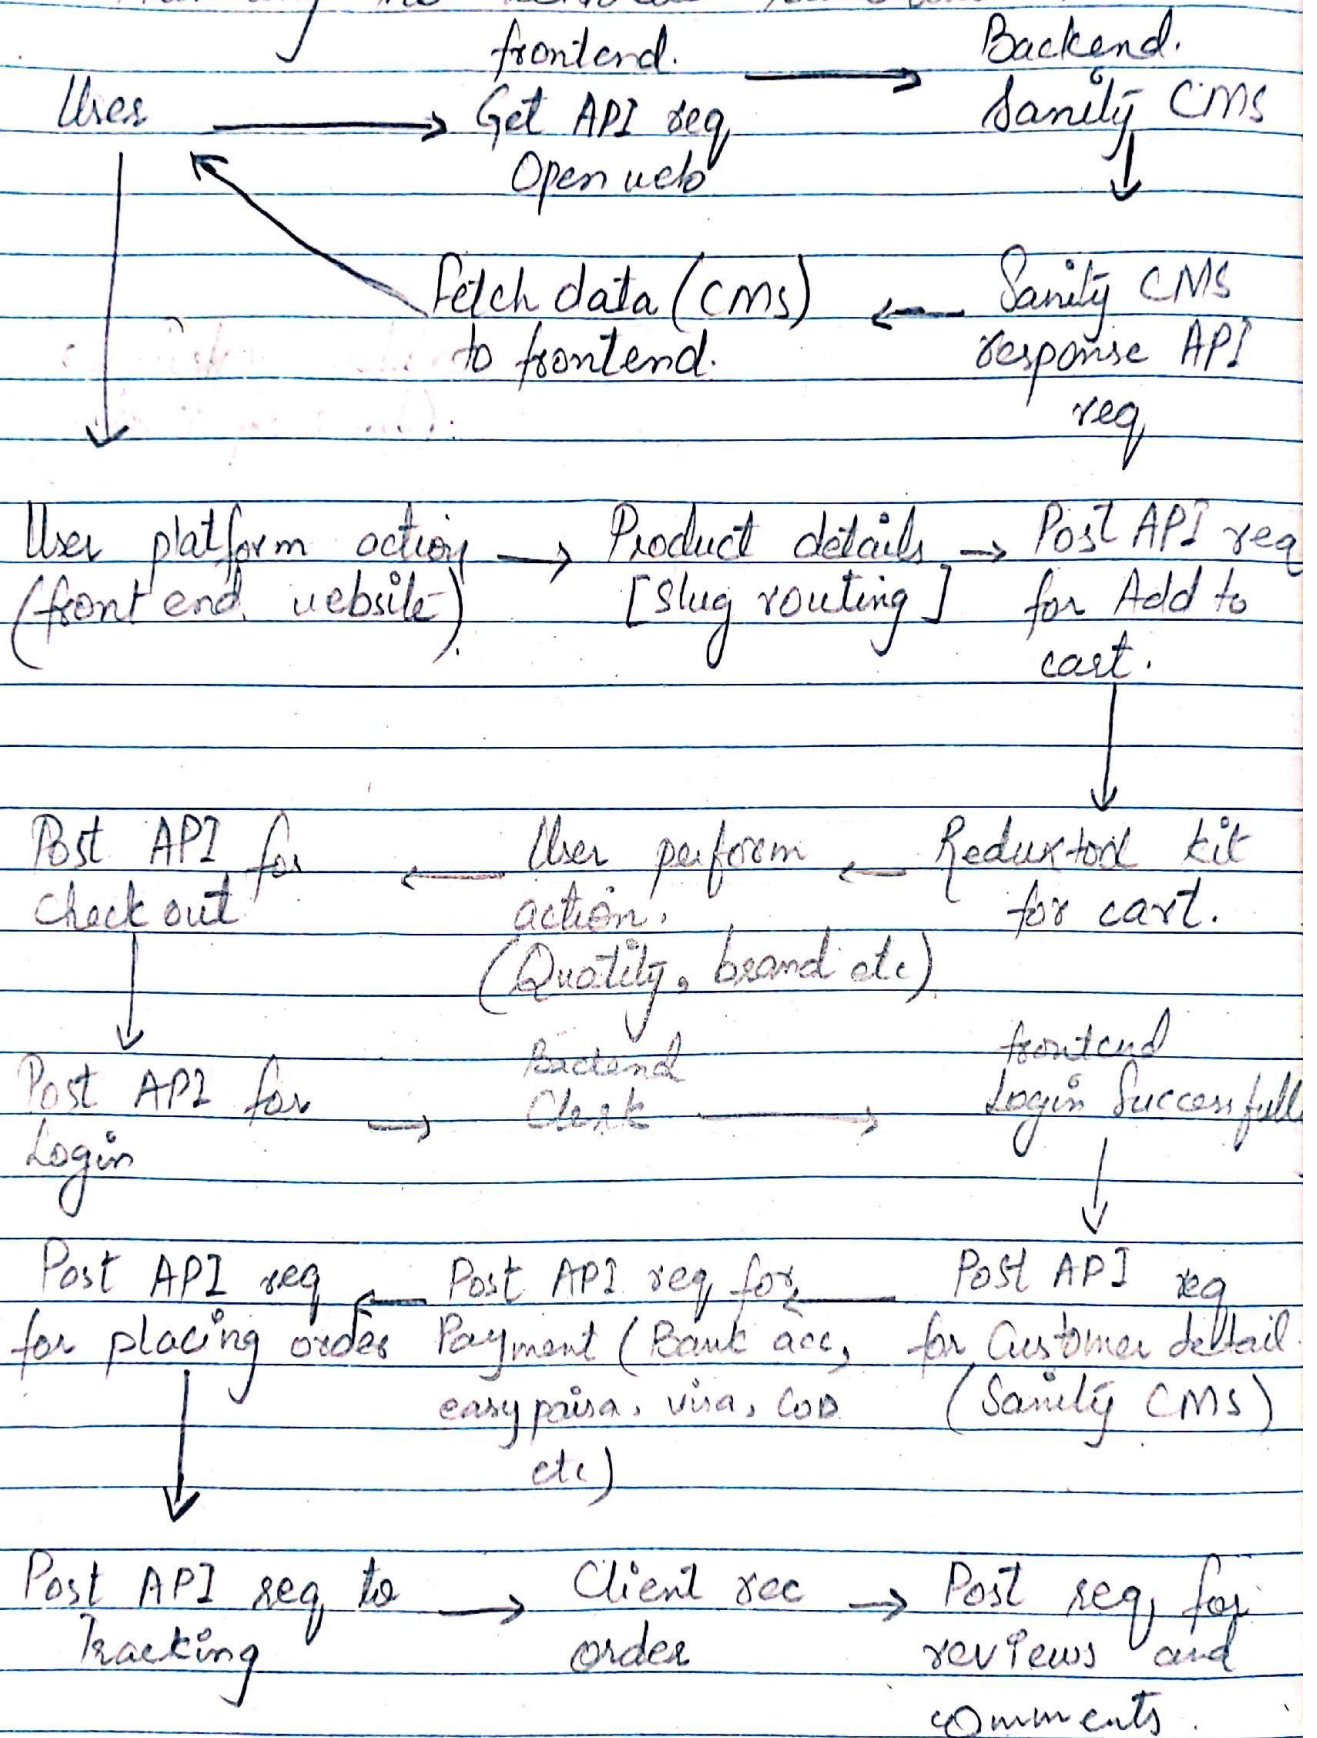 frontend.
Backend.
User
Get API req
Sanity CMS
Open web
Fetch data (CMS)
to frontend.
Sanity CMS
response API
req
User platform action
(front end website)
Product details
[Slug routing]
Post API req
for Add to
cart.
Post API for
check out
User perform
action.
(Quatity, brand etc)
Redux tool kit
for cart.
Post API for
Login
Backend
Clerk
frontend
Login Successfull
Post API req
for placing order
Post API req for
Payment (Bank acc,
easypaisa, visa, COD
etc)
Post API req
for Customer detail
(Sanity CMS)
Post API req to
Tracking
Client rec
order
Post req for
reviews and
comments.